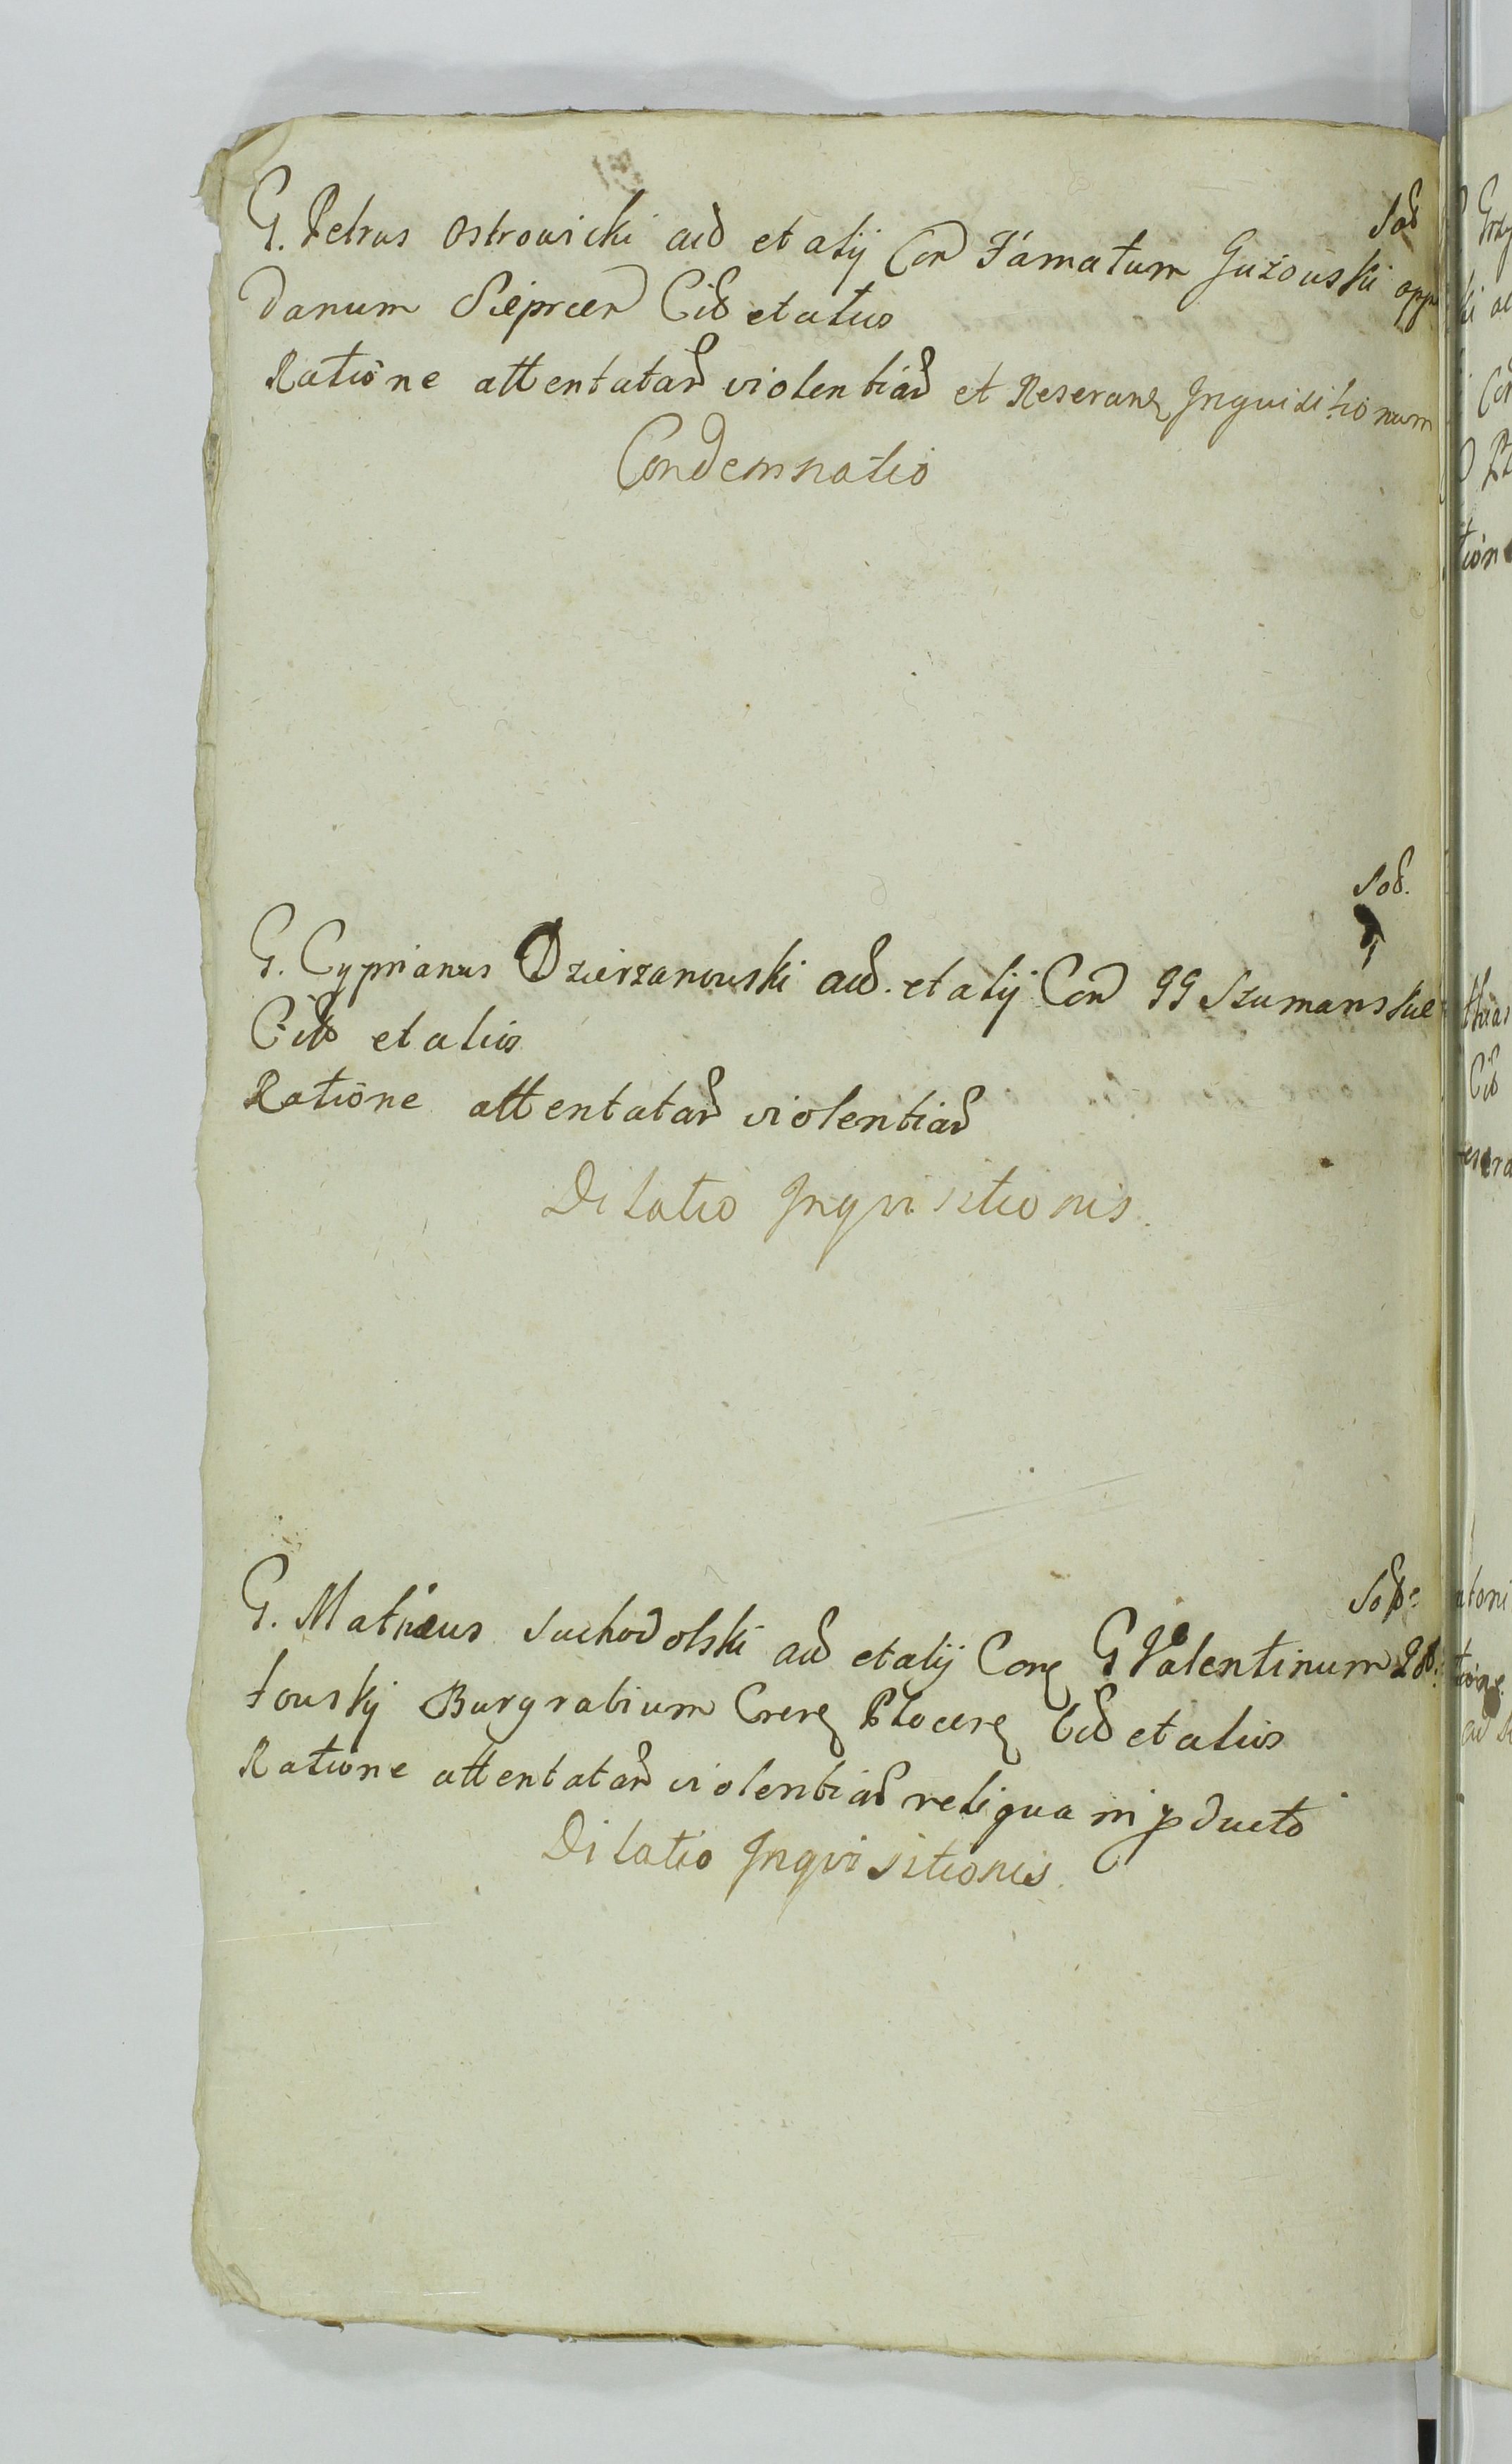 Sod
G. Petrus Ostrowicki aɔ et alij Con Famatum Guzouski opp
danum Sieprcen Cit et alios
Ratione attentatar violentiar et Reseran Inquisitionum
Condemnatio
Sod.
G. Cyprianus Dzierzanowski act. et alij Con GG Szumanskie
Citt et alios
Ratione attentatar violentiar
Dilatio Inqvisitionis.
G. Matheus Suchodolski act et alij Con G Valentinum
touskj Burgrabium Cren Plocen Cit et alios
Ratione attentatar violentiar reliqua in pducto
Dilatio Inqvisitionis.